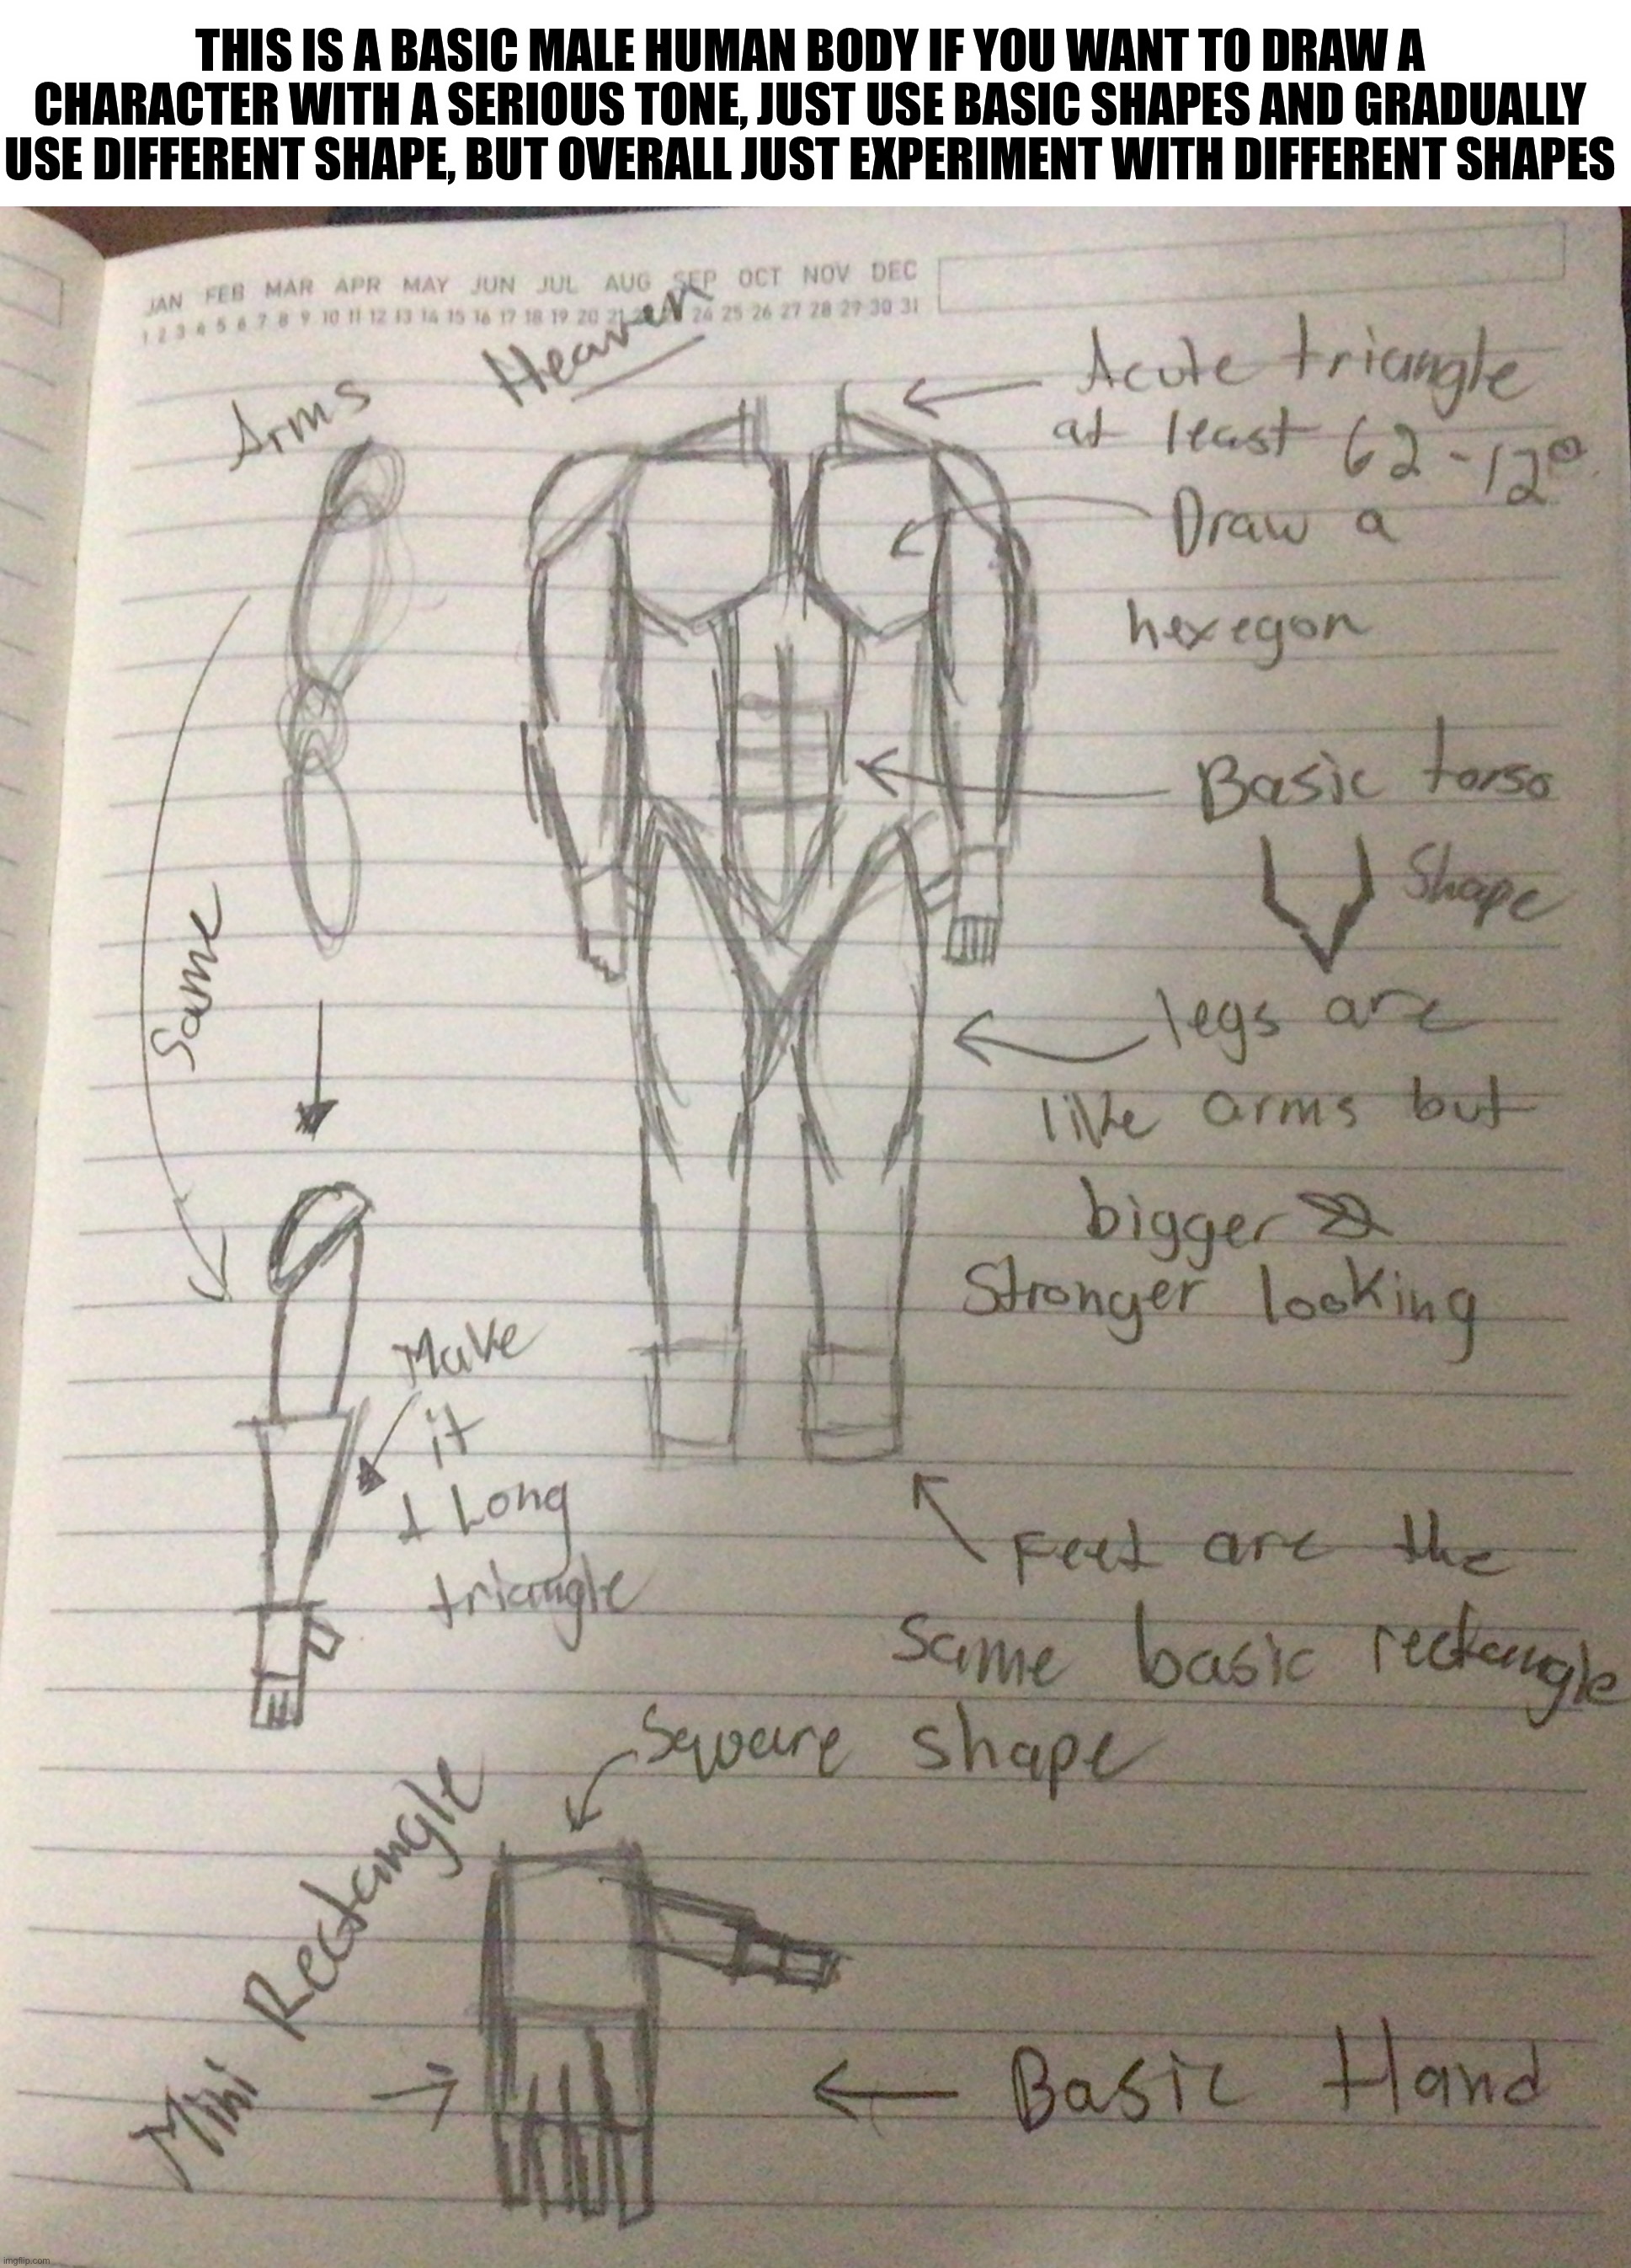 THIS IS A BASIC MALE HUMAN BODY IF YOU WANT TO DRAW A
CHARACTER WITH A SERIOUS TONE, JUST USE BASIC SHAPES AND GRADUALLY
USE DIFFERENT SHAPE, BUT OVERALL JUST EXPERIMENT WITH DIFFERENT SHAPES
JAN FEB MAR APR MAY JUN JUL AUG SEP OCT NOV DEC
1 2 3 4 5 6 7 8 9 10 11 12 13 14 15 16 17 18 19 20 21 24 25 26 27 28 29 30 31
Heaven
Arms
Acute triangle
at least 62-12°
Draw a
hexegon
Basic torso
Shape
Same
legs are
like arms but
bigger &
Stronger looking
Make
it
Long
triangle
Feet are the
same basic rectangle
Square shape
Mini Rectangle
Basic Hand
imgflip.com